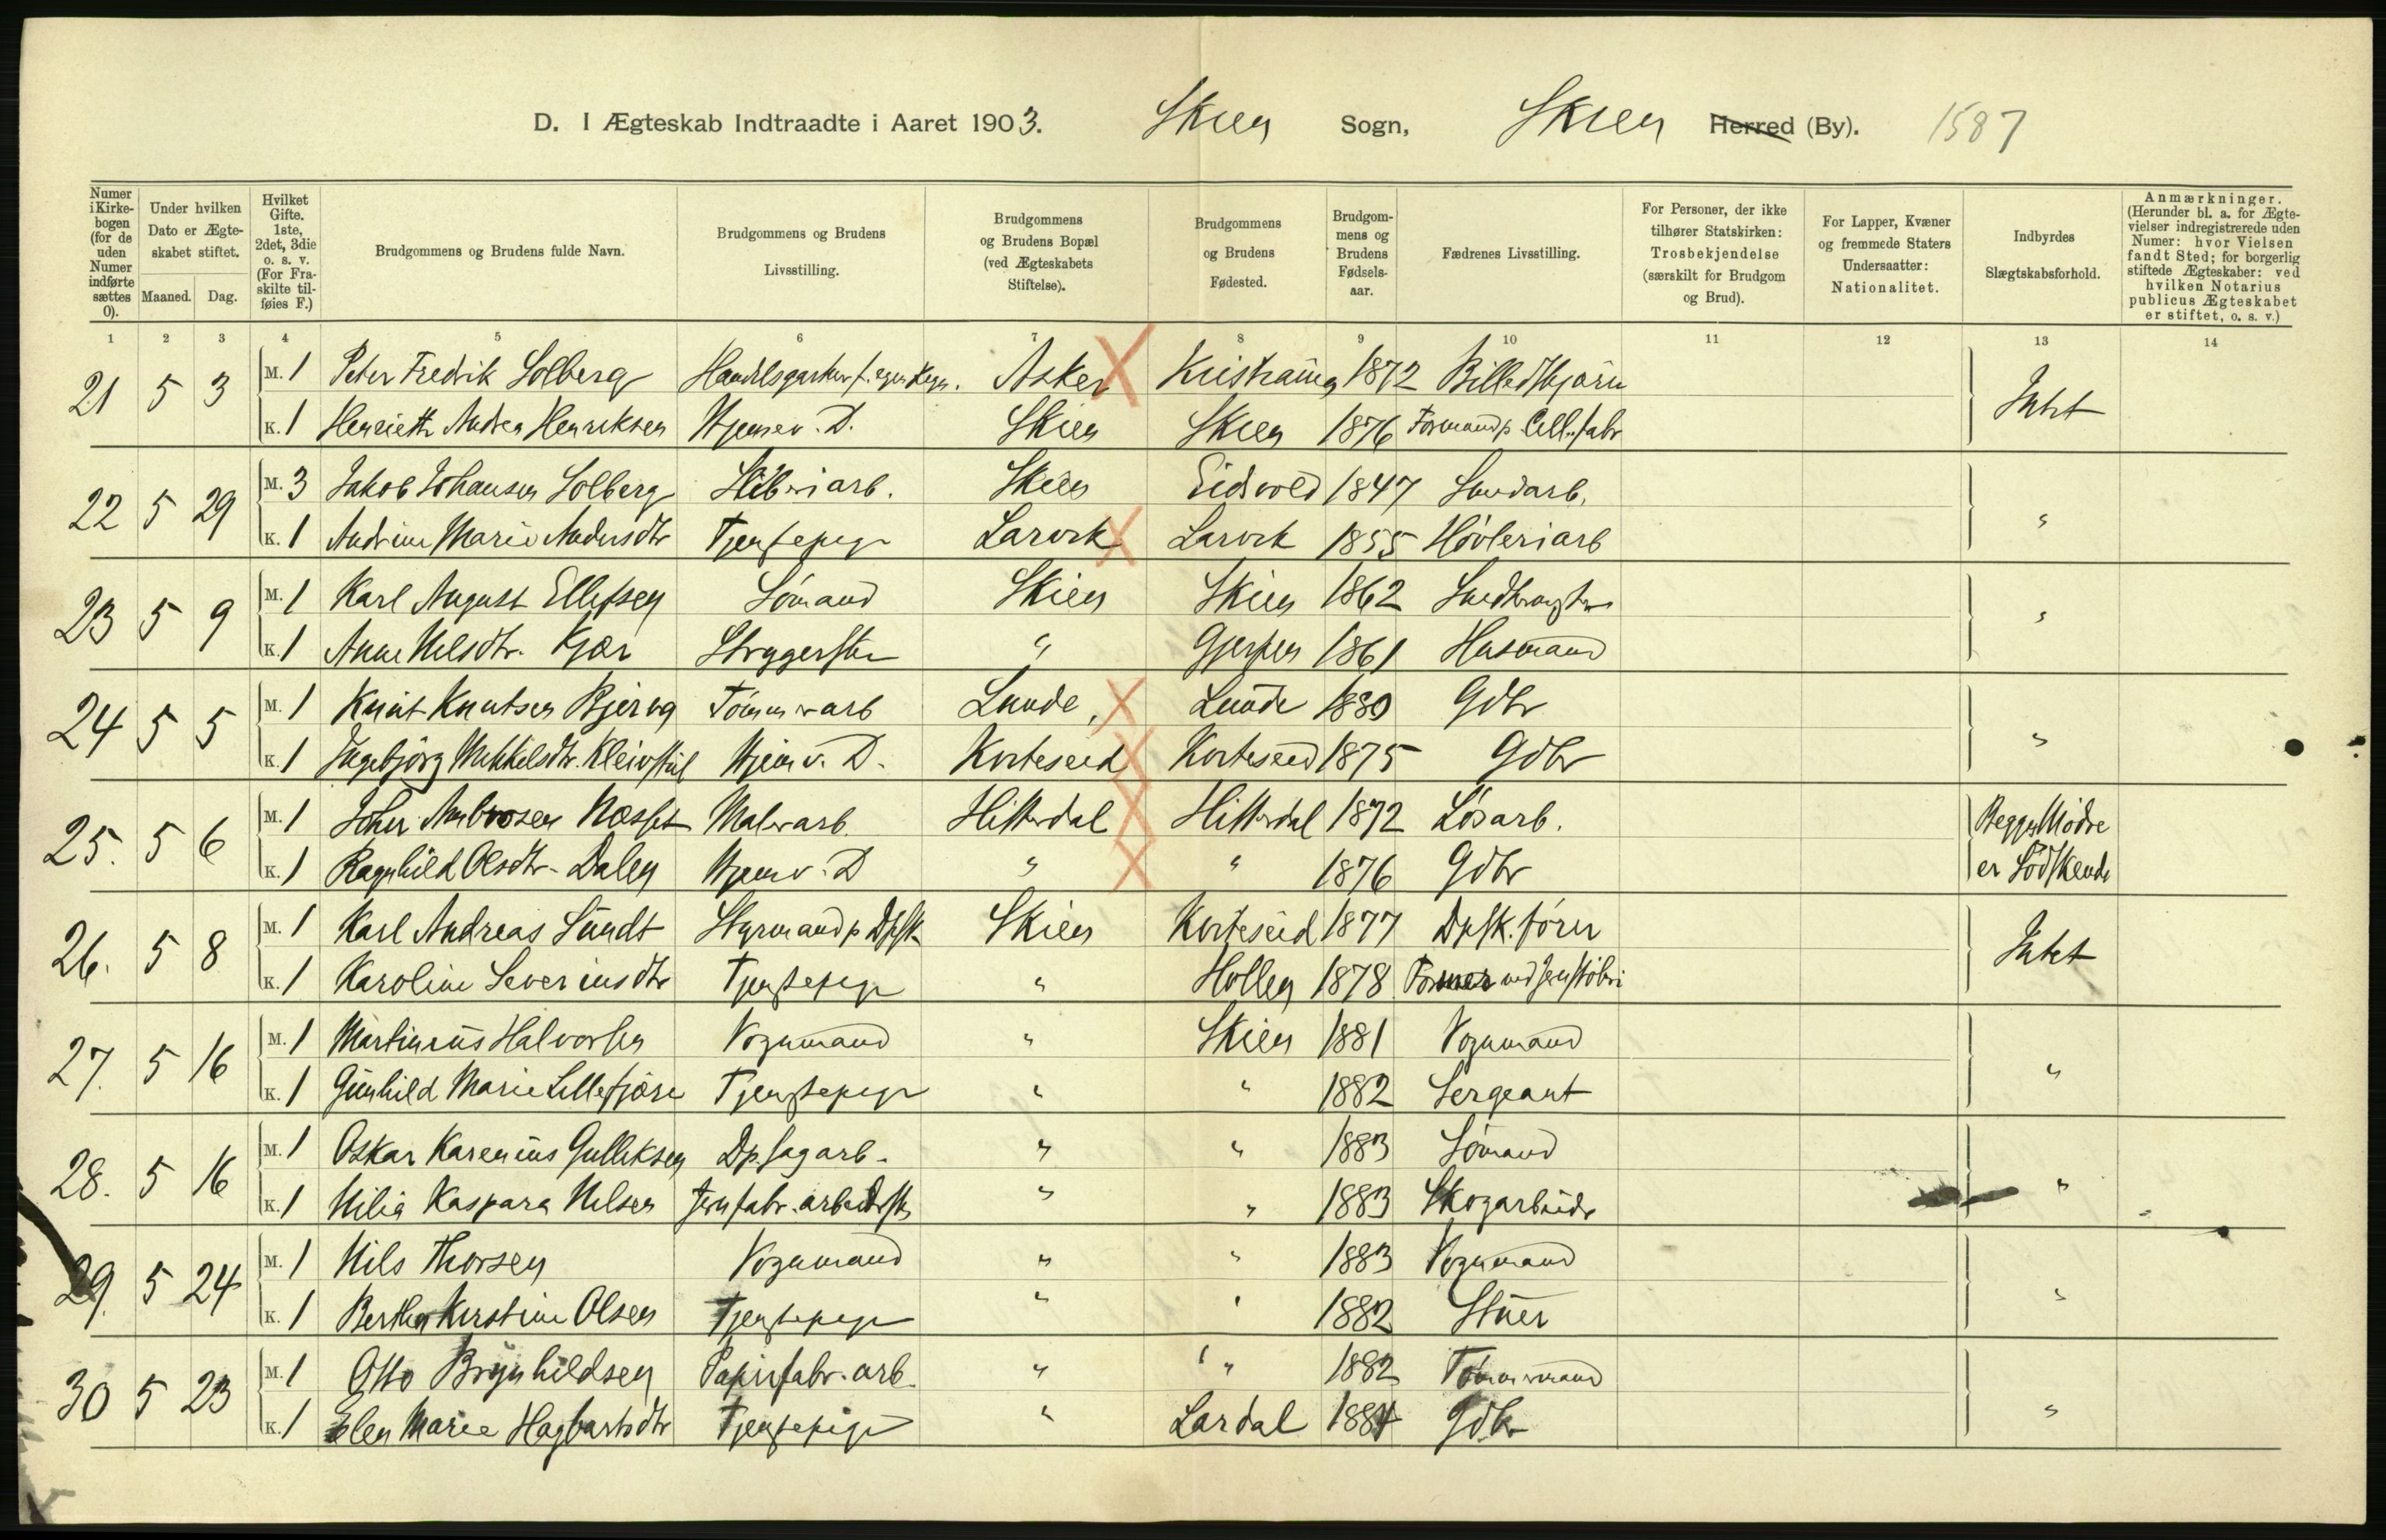 D. I Ægteskab Indtraadte i Aaret 1903. Skien Sogn, Skien Herred (By). 1587
Numer i Kirke-bogen (for de uden Numer indførte sættes 0). Under hvilken Dato er Ægte-skabet stiftet. Maaned. Dag. Hvilket Gifte. 1ste, 2det, 3die o. s. v. (For Fra-skilte til-føies F.) Brudgommens og Brudens fulde Navn. Brudgommens og Brudens Livsstilling. Brudgommens og Brudens Bopæl (ved Ægteskabets Stiftelse). Brudgommens og Brudens Fødested. Brudgom-mens og Brudens Fødsels-aar. Fædrenes Livsstilling. For Personer, der ikke tilhører Statskirken: Trosbekjendelse (særskilt for Brudgom og Brud). For Lapper, Kvæner og fremmede Staters Undersaatter: Nationalitet. Indbyrdes Slægtskabsforhold. Anmærkninger. (Herunder bl. a. for Ægte-vielser indregistrerede uden Numer: hvor Vielsen fandt Sted; for borgerlig stiftede Ægteskaber: ved hvilken Notarius publicus Ægteskabet er stiftet, o. s. v.)
1 2 3 4 5 6 7 8 9 10 11 12 13 14
21 5 3 M. 1 Peter Fredrik Solberg Handelsgartner f. egen Regn. Asker Kristiania 1872 Billedskjærer Intet
K. 1 Henriette Andrea Henriksen Hjemmev. D. Skien Skien 1876 Formand p. Cell. fabr
22 5 29 M. 3 Jakob Johansen Solberg Sliberiarb. Skien Eidsvold 1847 "
K. 1 Andrine Marie Andersdtr Tjenstepige Larvik Larvik 1855 Høvleriarb
23 5 9 M. 1 Karl August Ellefsen Sömand Skien Skien 1862 "
K. 1 Anne Nilsdtr. Kjær Strygerske " Gjerpen 1861 Husmand
24 5 5 M. 1 Knut Knutsen Bjerva Tömmerarb Lunde, Lunde 1880 Gdbr "
K. 1 Ingebjörg Mikkelsdtr. Kleivstul Hjemv. D. Kviteseid Kviteseid 1875 Gdbr
25. 5 6 M. 1 John Ambrosen Næsset Malerarb. Hitterdal Hitterdal 1872 Lösarb. Begges Mödre
K. 1 Ragnhild Olsdtr. Dalen Hjemv. D " " 1876 Gdbr er Södskende
26. 5 8 M. 1 Karl Andreas Sundt Styrmand p. Dpsk. Skien Kviteseid 1877 Dpsk. förer Intet
K. 1 Karoline Severinsdtr Tjenstepige " Hollen 1878 Former ved Jernstöberi
27. 5 16 M. 1 Martinius Halvorsen Vognmand " Skien 1881 Vognmand "
K. 1 Gunhild Marie Lillefjære Tjenstepige " " 1882 Sergeant
28. 5 16 M. 1 Oskar Karenius Gulliksen Dp. sagarb. " " 1883 Sömand "
K. 1 Nilia Kaspara Nilsen " " 1883 Skogarbeider
29. 5 24 M. 1 Nils Thorsen Vognmand " " 1883 Vognmand "
K. 1 Bertha Kirstine Olsen Tjenstepige " " 1882 Stuer
30 5 23 M. 1 Otto Brynhildsen Papirfabr. arb. " " 1882 Tömmermand "
K. 1 Elen Marie Hagbartsdtr Tjenstepige " Lardal 1884 Gdbr